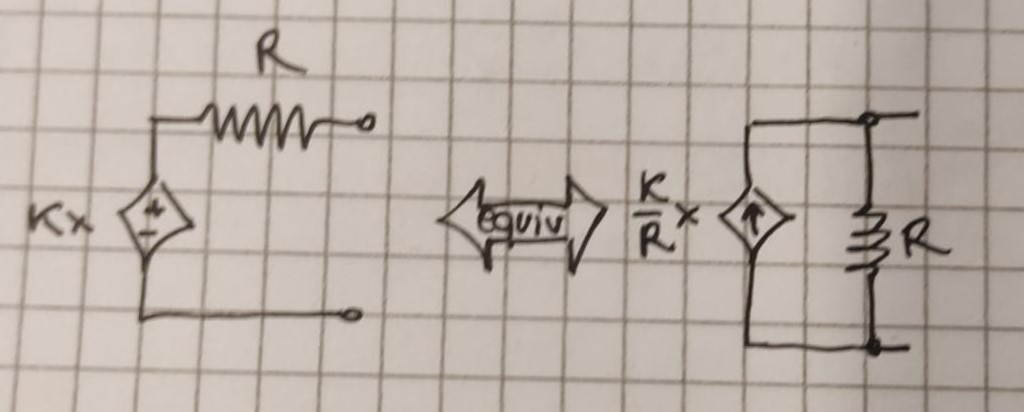 R
Kx
+
-
equiv
K/R x
R